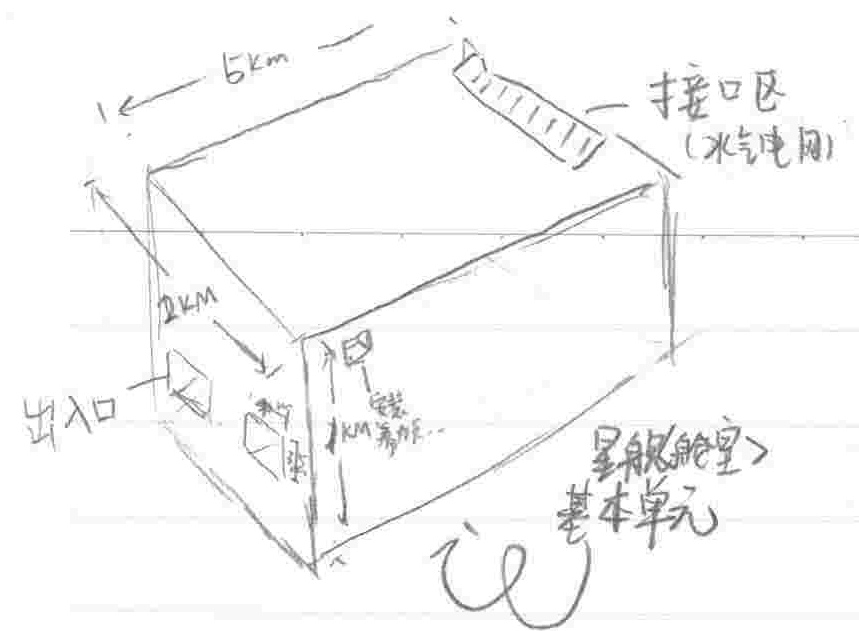 5km
接口区
(水气电网)
2KM
出入口
1KM
安装
星舰<舱室>
基本单元